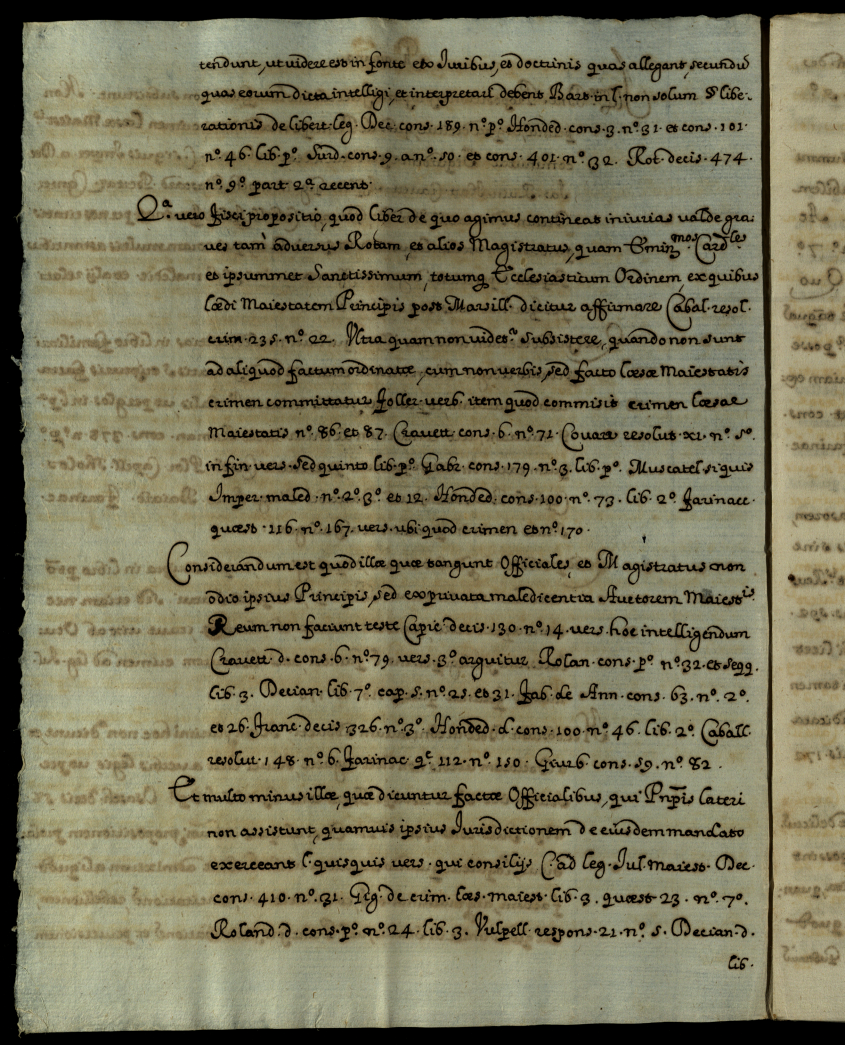 tendunt, ut videre est in fonte et Iuribus, et doctrinis quas allegant, secundũ
quas eorum dicta intelligi, et interpretari debent Bart. in l. non solum § libe-
rationis de libert. leg. Dec. cons. 189. nº. pº. Honded. cons. 3. nº. 31. et cons. 101.
nº. 46. lib. pº. Surd. cons. 9. a nº. 50. et cons. 401. nº. 32. Rot. decis. 474.
nº. 9º. part. 2ª. recent.
Qª. vero fisci propositio, quod liber de quo agimus contineat iniurias valde gra-
ves tam adversus Rotam, et alios Magistratus, quam Emin.mos Card.les
et ipsummet Sanctissimum, totumq. Ecclesiasticum Ordinem, ex quibus
lædi Maiestatem Principis post Marsill. dicitur affirmare Cabal. resol.
crim. 235. nº. 22. Ultra quam non videt.r subsistere, quando non sunt
ad aliquod factum ordinatæ, cum non verbis, sed facto læsæ Maiestatis
crimen committatur foller. verb. item quod commisit crimen læsae
Maiestatis nº. 86. et 87. Cravett. cons. 6. nº. 71. Covarr. resolut. xi. nº. 5º.
in fin. vers. sed quinto lib. pº. Gabr. cons. 179. nº. 3. lib. pº. Muscatel. si quis
Imper. maled. nº. 2º. 3º. et 12. Honded. cons. 100. nº. 73. lib. 2º. farinacc.
quæst. 116. nº. 167. vers. ubi quod crimen et nº. 170.
Considerandum est quod illæ quæ tangunt Officiales, et Magistratus non
odio ipsius Principis, sed ex privata maledicentia Auctorem Maiest.is
Reum non faciunt teste Capic. decis. 130. nº. 14. vers. hoc intelligendum
Cravett. d. cons. 6. nº. 79. vers. 3º. arguitur Rolan. cons. pº. nº. 32. et seqq.
lib. 3. Decian. lib. 7º. cap. 5. nº. 25. et 31. fab. de Ann. cons. 63. nº. 2º.
et 26. franc. decis. 326. nº. 3º. Honded. d. cons. 100. nº. 46. lib. 2º. Caball.
resolut. 148. nº. 6. farinac. q.e 112. nº. 150. Giurb. cons. 59. nº. 82.
Et multo minus illæ, quæ dicuntur factæ Officialibus, qui Pnpis lateri
non assistunt, quamuis ipsius Iurisdictionem de eiusdem mandato
exerceant l. quisquis vers. qui consilijs C. ad leg. Iul. maiest. Dec.
cons. 410. nº. 31. Gig. de crim. læs. maiest. lib. 3. quæst. 23. nº. 7º.
Roland. d. cons. pº. nº. 24. lib. 3. Vulpell. respons. 21. nº. 5. Decian. d.
lib.